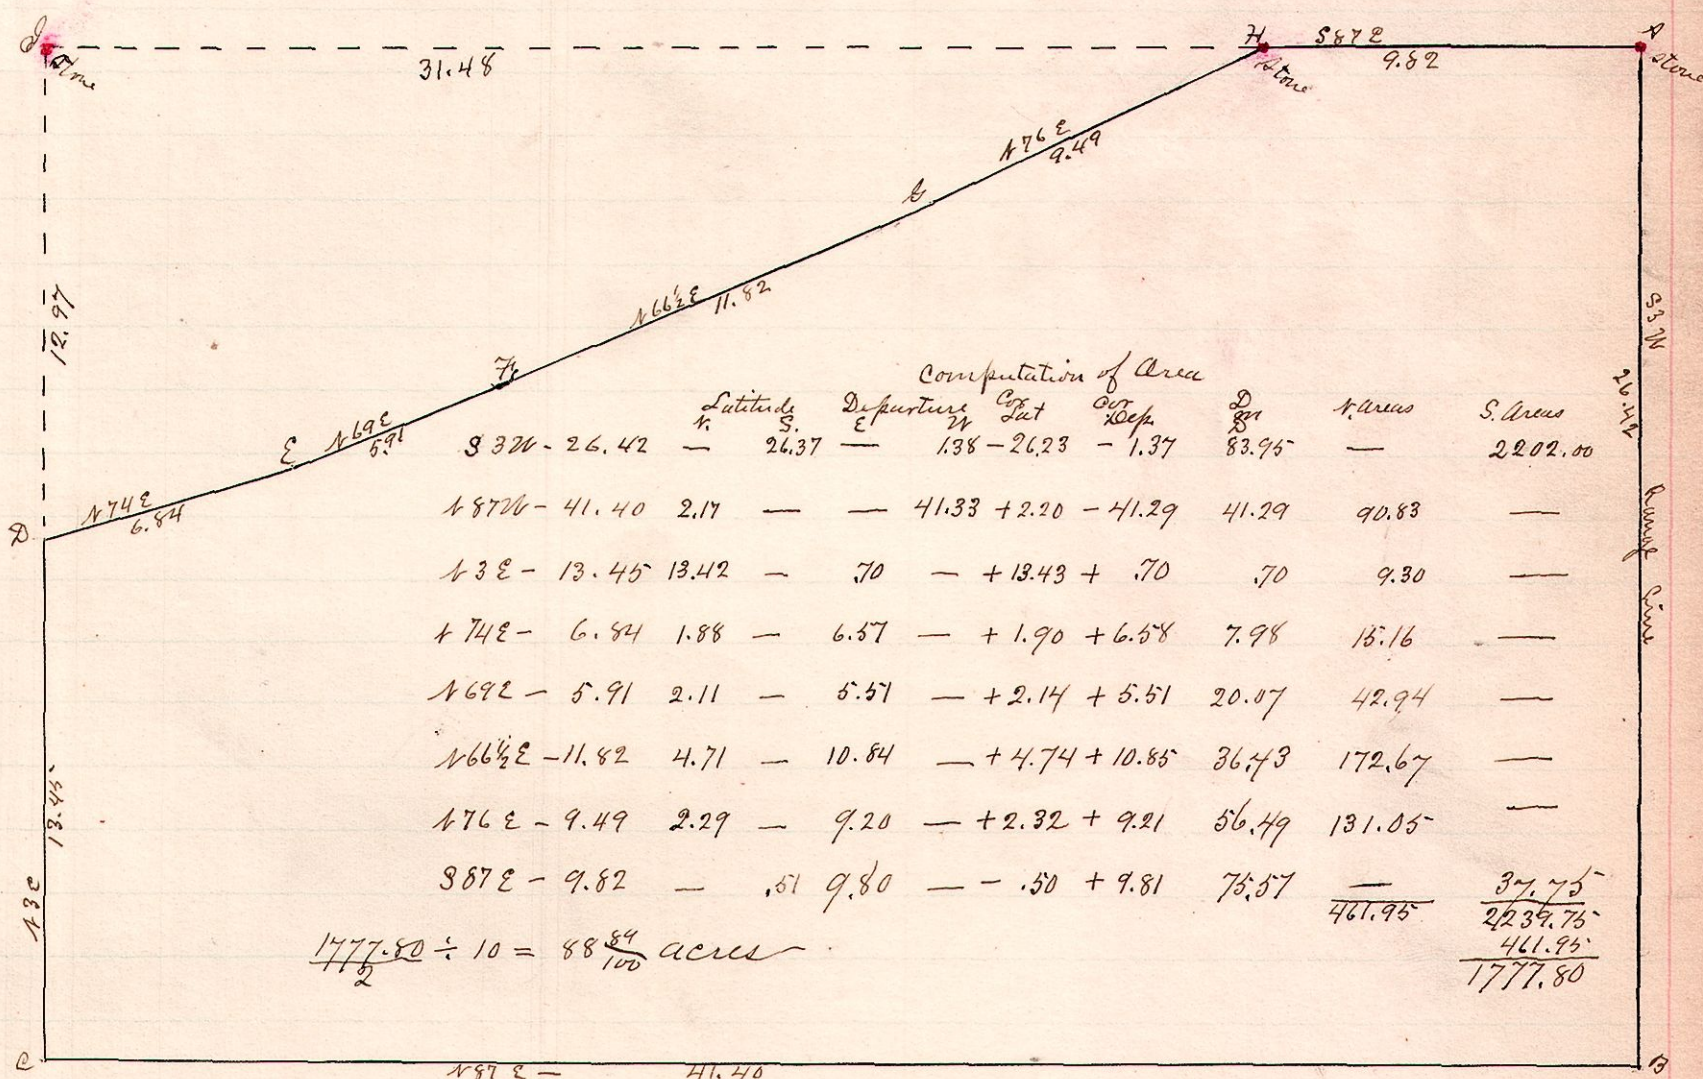 J
Stone
31.48
H
Stone
S87E
9.82
A
Stone
N76E
9.49
G
N66½E
11.82
F
N69E
5.91
E
N74E
6.84
D
12.97
S3W
26.42
Range Line
Computation of Area
Latitude Departure Cor Lat Cor Dep. D M D N. Areas S. Areas
N. S. E W
S3W - 26.42 — 26.37 — 1.38 - 26.23 - 1.37 83.95 — 2202.00
N87W - 41.40 2.17 — — 41.33 + 2.20 - 41.29 41.29 90.83 —
N3E - 13.45 13.42 — .70 — + 13.43 + .70 .70 9.30 —
N74E - 6.84 1.88 — 6.57 — + 1.90 + 6.58 7.98 15.16 —
N69E - 5.91 2.11 — 5.51 — + 2.14 + 5.51 20.07 42.94 —
N66½E - 11.82 4.71 — 10.84 — + 4.74 + 10.85 36.43 172.67 —
N76E - 9.49 2.29 — 9.20 — + 2.32 + 9.21 56.49 131.05 —
S87E - 9.82 — .51 9.80 — - .50 + 9.81 75.57 — 37.75
461.95 2239.75
461.95
1777.80
1777.80/2 ÷ 10 = 88 89/100 acres
13.45
N3E
C
N87E — 41.40
B